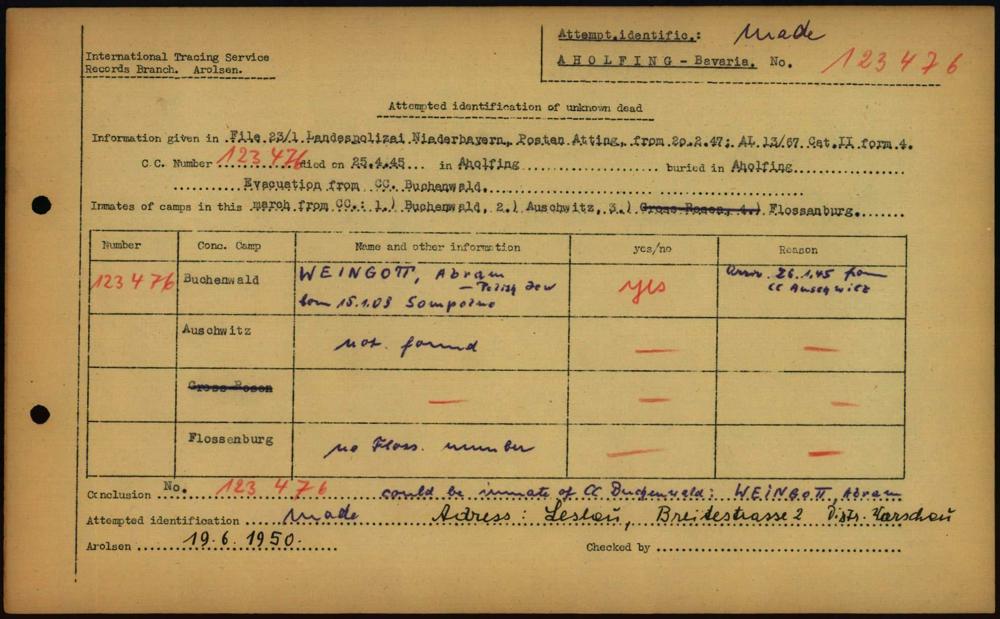 Attempt.identific.: made
International Tracing Service
Records Branch. Arolsen.
AHOLFING - Bavaria. No. 123476
Attempted identification of unknown dead
Information given in File 23/1 Landespolizai Niederbayern, Posten Atting, from 20.2.47; AL 13/67 Cat.II form 4.
C.C. Number 123476 died on 25.4.45 in Aholfing buried in Aholfing
Evacuation from CC. Buchenwald.
Inmates of camps in this march from CC.: 1.) Buchenwald, 2.) Auschwitz, 3.) Gross-Rosen, 4.) Flossenburg.
Number Conc. Camp Name and other information yes/no Reason
123476 Buchenwald WEINGOTT, Abram yes arriv. 26.1.45 from
– Polish Jew CC Auschwitz
born 15.1.09 Sompolno
Auschwitz not found — —
Gross-Rosen — — —
Flossenburg no Floss. number — —
Conclusion No. 123476 could be inmate of CC Buchenwald: WEINGOTT, Abram
Attempted identification made Adress: Leslau, Breitestrasse 2 Distr. Warschau
Arolsen 19.6.1950. Checked by